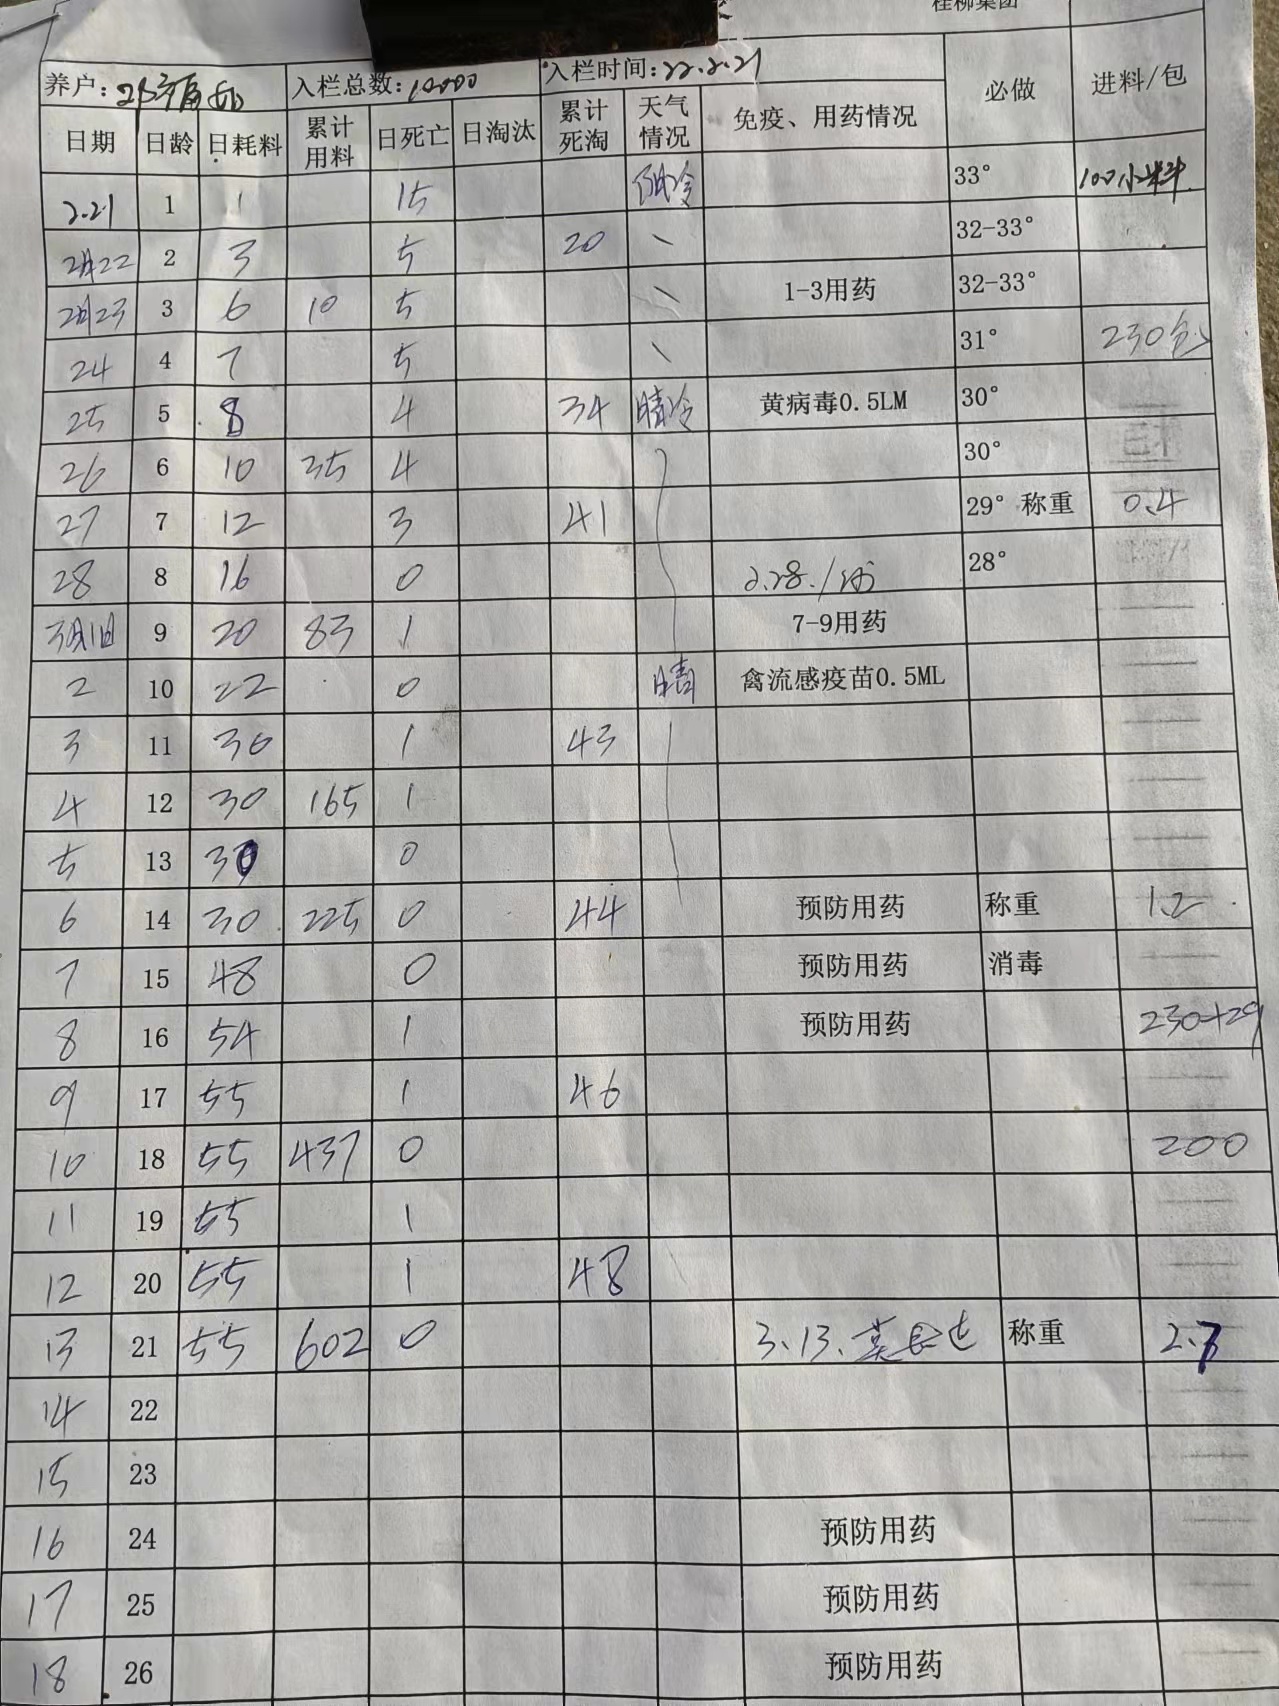 桂柳集团
养户: 入栏总数:10000 入栏时间:22.2.21 必做 进料/包
日期 日龄 日耗料 累计用料 日死亡 日淘汰 累计死淘 天气情况 免疫、用药情况
2.21 1 1 15 阴冷 33° 100小料
2月22 2 3 5 20 \ 32-33°
2月23 3 6 10 5 \ 1-3用药 32-33°
24 4 7 5 \ 31° 230包
25 5 8 4 34 晴冷 黄病毒0.5LM 30°
26 6 10 35 4 30°
27 7 12 3 41 29° 称重 0.4
28 8 16 0 2.28. 28°
3月1日 9 20 83 1 7-9用药
2 10 22 0 晴 禽流感疫苗0.5ML
3 11 30 1 43
4 12 30 165 1
5 13 30 0
6 14 30 225 0 44 预防用药 称重 1.2
7 15 48 0 预防用药 消毒
8 16 54 1 预防用药 230+29
9 17 55 1 46
10 18 55 437 0 200
11 19 55 1
12 20 55 1 48
13 21 55 602 0 3.13. 称重 2.7
14 22
15 23
16 24 预防用药
17 25 预防用药
18 26 预防用药